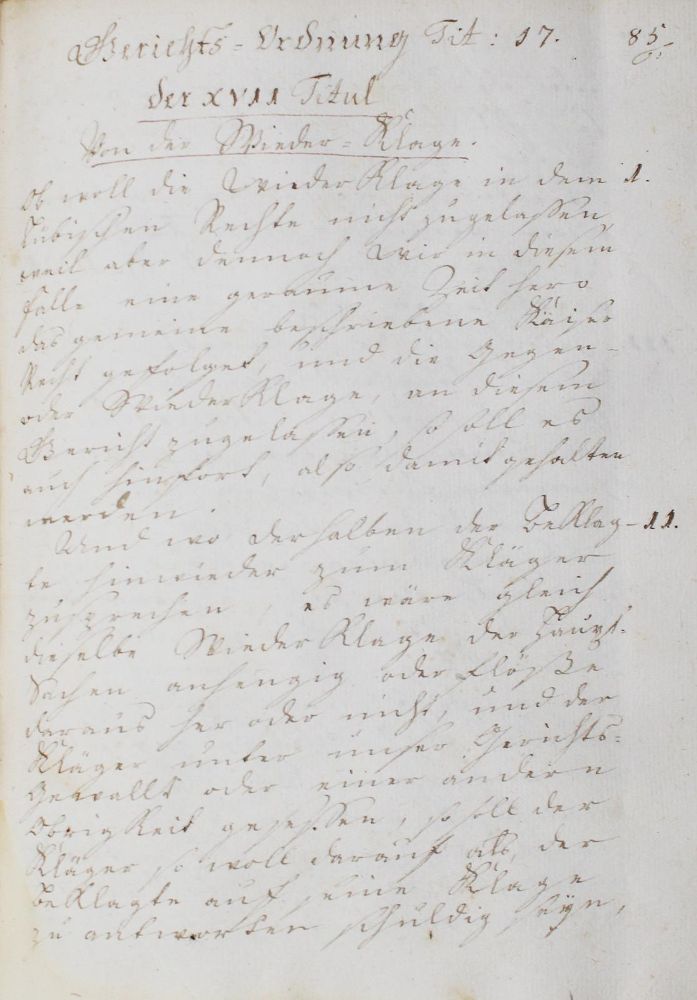 Gerichts=Ordnung Tit: 17. 85
der XVII Titul
Von der Wieder=Klage.
Ob woll die WiederKlage in dem 1.
Lübischen Rechte nicht zugelassen,
weil aber dennoch Wir in diesem
falle eine geraume Zeit hero
das gemeine beschriebene Käiser
Recht gefolget, und die Gegen-
oder WiederKlage, an diesem
Gericht zugelassen, so soll es
auch hinfort, also damit gehalten
werden.
Und wo derhalben der beKlag- 11.
te hinwieder zum Kläger
zusprechen, es wäre gleich
dieselbe WiederKlage der Haupt-
Sachen anhengig oder flöße
daraus her oder nicht, und der
Kläger unter unser Gerichts-
Gewallt oder einer andern
ObrigKeit gesessen, so soll der
Kläger so woll darauf als, der
beKlagte auf seine Klage
zu antworten schuldig seyn,